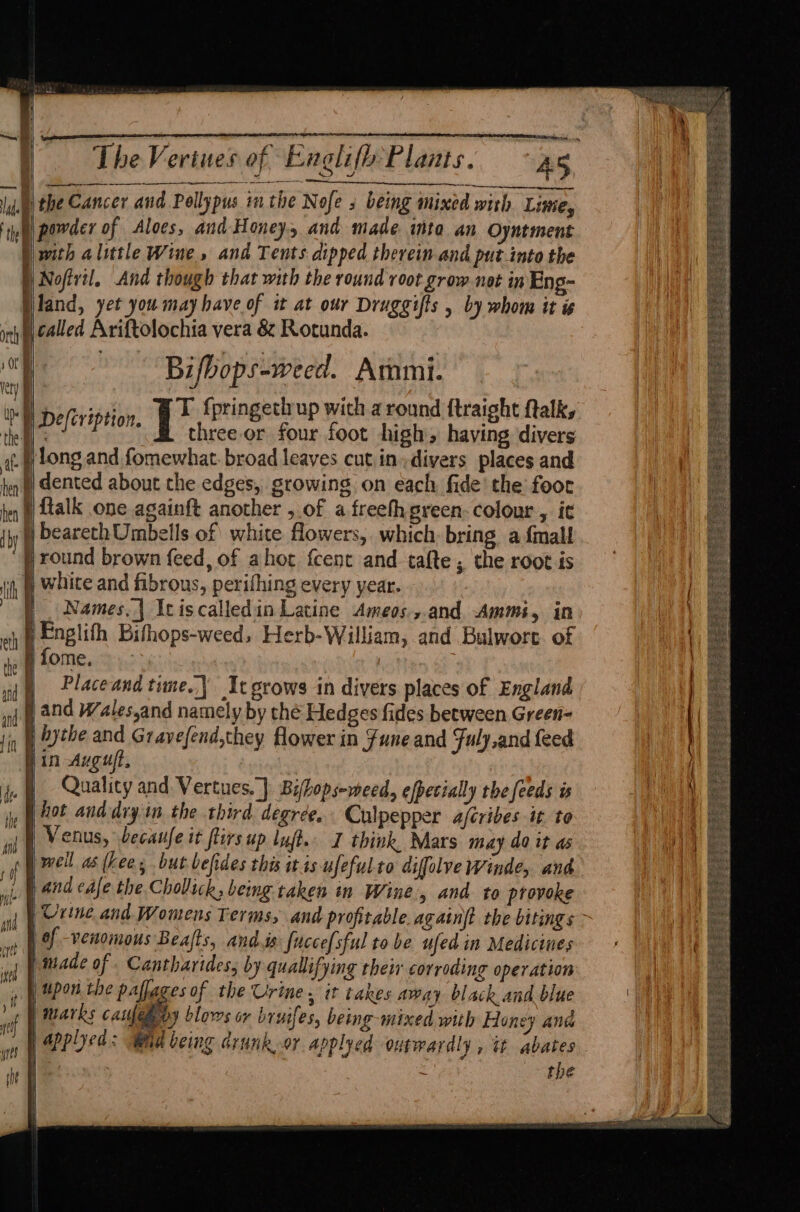 The Vertues of Engliſh Plants. 45
the Cancer and Pollypus in the Noſe ; being mixed with Lime,
powder of Aloes, and Honey, and made into an Oyntment
with a little Wine, and Tents dipped therein and put into the
Noſtril. And though that with the round root grow not in Eng-
land, yet you may have of it at our Druggiſts, by whom it is
called Ariſtolochia vera & Rotunda.
Biſhops-weed. Ammi.
Deſcription. IT ſpringeth up with a round ſtraight ſtalk,
three or four foot high, having divers
long and ſomewhat broad leaves cut in divers places and
dented about the edges, growing on each ſide the foot
ſtalk one againſt another, of a freeſh green colour, it
beareth Umbells of white flowers, which bring a ſmall
round brown ſeed, of a hot ſcent and taſte; the root is
white and fibrous, periſhing every year.
Names.] It is called in Latine Ameos, and Ammi, in
Engliſh Biſhops-weed, Herb-William, and Bulwort of
ſome.
Place and time.] It grows in divers places of England
and Wales, and namely by the Hedges ſides between Green-
hythe and Graveſend, they flower in June and July, and ſeed
in Auguſt.
Quality and Vertues.] Biſhops-weed, eſpecially the ſeeds is
hot and dry in the third degree. Culpepper aſcribes it to
Venus, becauſe it ſtirs up luſt. I think Mars may do it as
well as ſhee; but beſides this it is uſeful to diſſolve Winde, and
and eaſe the Chollick, being taken in Wine, and to provoke
Urine and Womens Terms, and profitable againſt the bitings
of venomous Beaſts, and is ſucceſsful to be uſed in Medicines
made of Cantharides, by quallifying their corroding operation
upon the paſſages of the Urine, it takes away black and blue
marks cauſed by blows or bruiſes, being mixed with Honey and
applyed: And being drunk or applyed outwardly, it abates
the